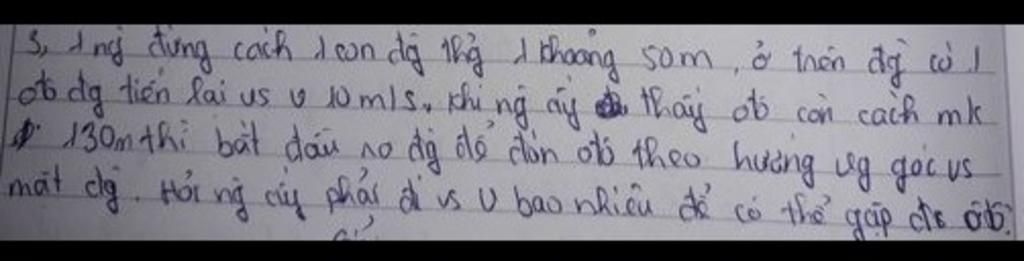 3, 1 ng đứng cách 1 con đg thg 1 khoảng 50m, ở trên đg có 1
ôtô đg tiến lại vs v 10m/s. Khi ng ấy thấy ôtô còn cách mk
130m thì bắt đầu ra đg để đón ôtô theo hướng vg góc vs
mặt đg. Hỏi ng ấy phải đi vs v bao nhiêu để có thể gặp đc ôtô?